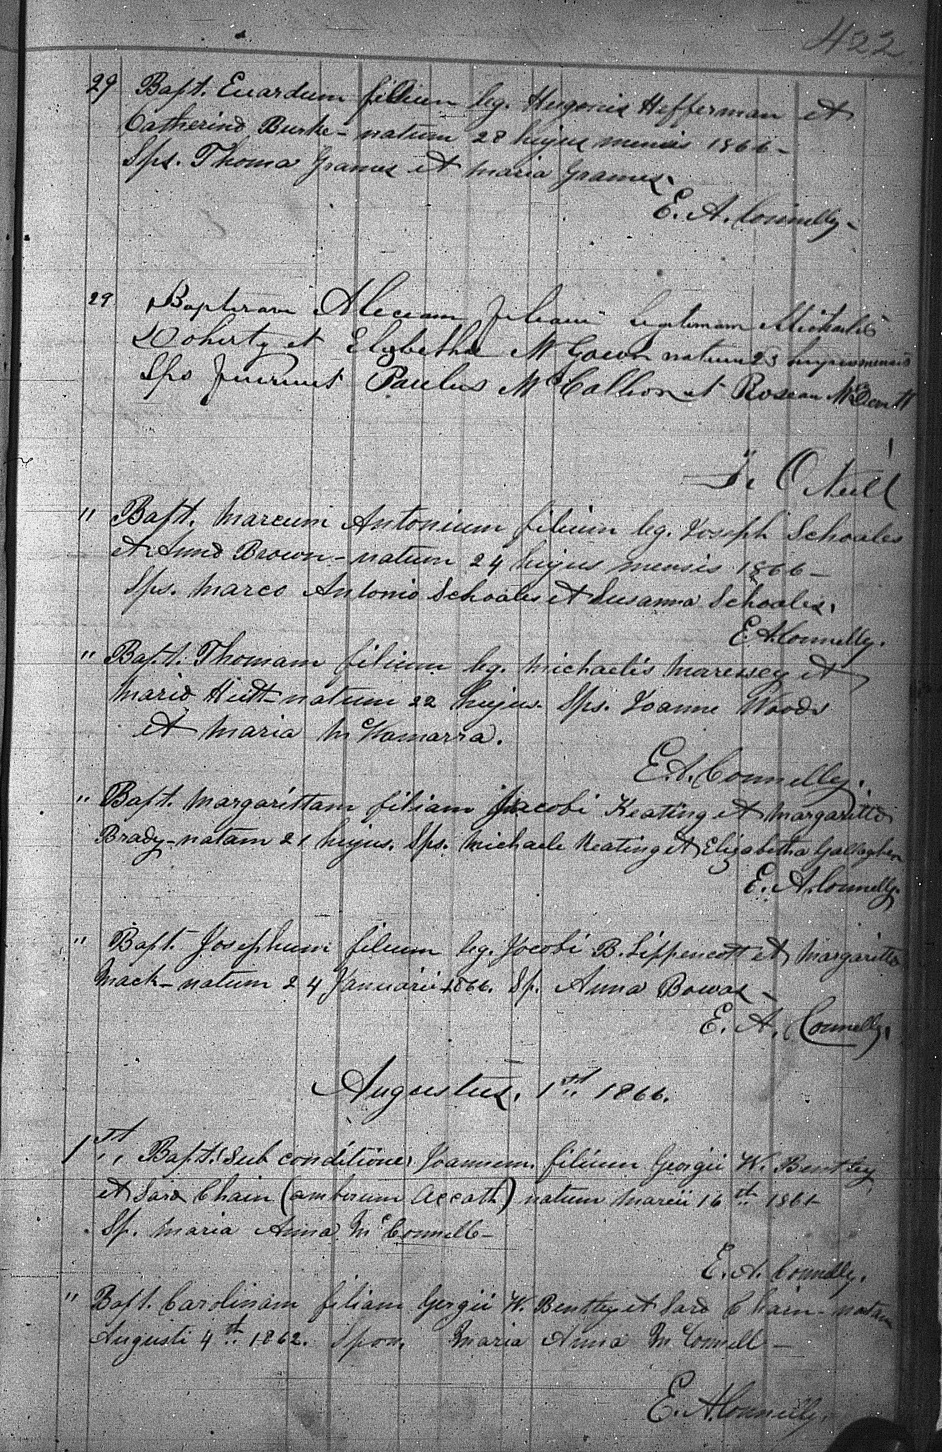 422
29 Bapt. Eduardum filium leg. Hugonis Hefferman et
Catherinæ Burke - natum 28 hujus mensis 1866 -
Sps. Thoma Grames et Maria Grames.
E. A. Connelly -
29 Baptizavi Aleciam filiam legitimam Michaelis
Doherty et Elizbetha McGown natum 23 hujus mensis
Sps fuerunt Paulus McCallion et Rosean
J. O Neill
" Bapt. Marcum Antonium filium leg. Joseph Schoales
et Annæ Brown - natum 24 hujus mensis 1866 -
Sps. Marco Antonio Schoales et Susanna Schoales.
E A Connelly.
" Bapt. Thomam filium leg. Michaelis et
Mariæ natum 22 hujus. Sps. Joanne Woods
et Maria McNamarra.
E. A. Connelly.
" Bapt. Margarittam filiam Jacobi Keating et Margarittæ
Brady - natam 21 hujus. Sps. Michaele Keating et Elizabetha Gallagher
E. A. Connelly.
" Bapt. Josephum filium leg. Jacobi B. Lippencott et Margarittæ
Mack - natum 24 Januarii 1866. Sp. Anna
E. A. Connelly.
Augustus. 1st 1866.
1st " Bapt. (sub conditione) Joannem filium Georgii W. Bentley
et Saræ Chain (amborum accath) natum Marcii 16th 1861
Sp. Maria Anna McConnell -
E. A. Connelly.
" Bapt. Carolinam filiam Gergii W. Bentley et Saræ Chain - natam
Augusti 4th 1862. Spon. Maria Anna McConnell -
E. A. Connelly.